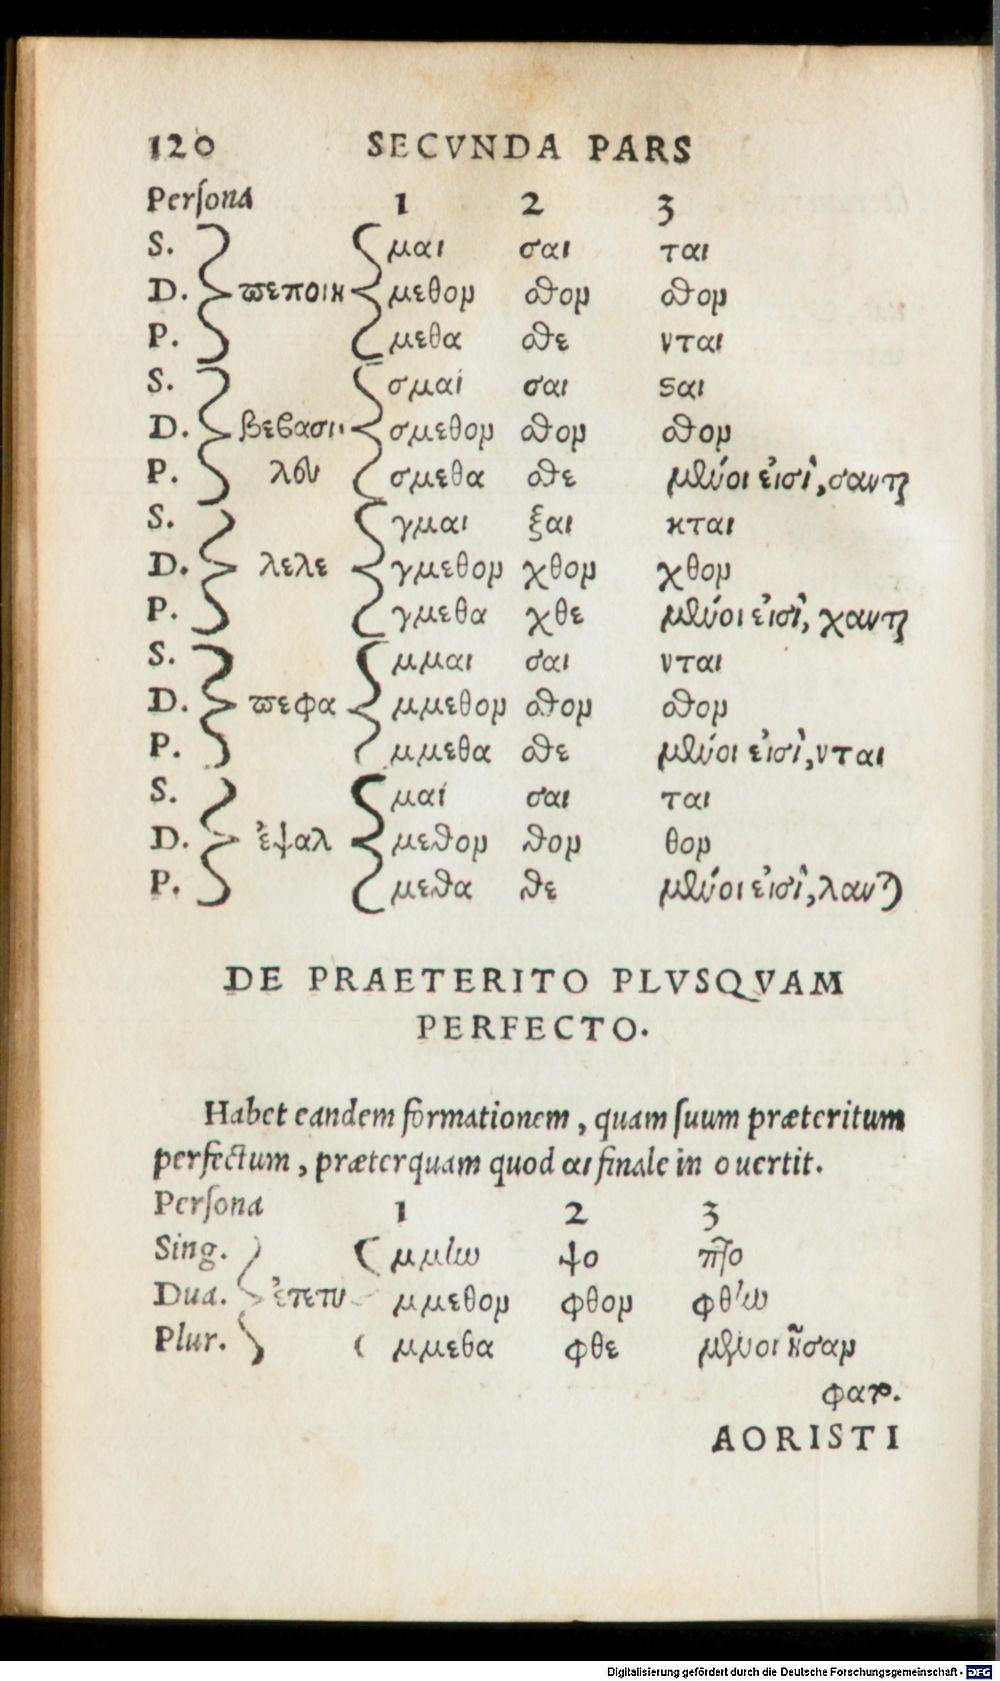 120 SECVNDA PARS
Perſona 1 2 3
S. μαι σαι ται
D. ϖεποιη μεθον σθον σθον
P. μεθα σθε νται
S. σμαι σαι ϛαι
D. βεβασι σμεθον σθον σθον
P. λευ σμεθα σθε μένοι εἰσὶ, σανται
S. γμαι ξαι κται
D. λελε γμεθον χθον χθον
P. γμεθα χθε μένοι εἰσὶ, χανται
S. μμαι σαι νται
D. ϖεφα μμεθον σθον σθον
P. μμεθα σθε μένοι εἰσὶ, νται
S. μαι σαι ται
D. ἐψαλ μεθον θον θον
P. μεθα θε μένοι εἰσὶ, λανται
DE PRAETERITO PLVSQVAM
PERFECTO.
Habet eandem formationem, quam ſuum præteritum
perfectum, præterquam quod αι finale in ο uertit.
Perſona 1 2 3
Sing. μμην ψο πτο
Dua. ἐπετυ μμεθον φθον φθην
Plur. μμεθα φθε μένοι ἦσαν
φατο.
AORISTI
Digitalisierung gefördert durch die Deutsche Forschungsgemeinschaft - DFG